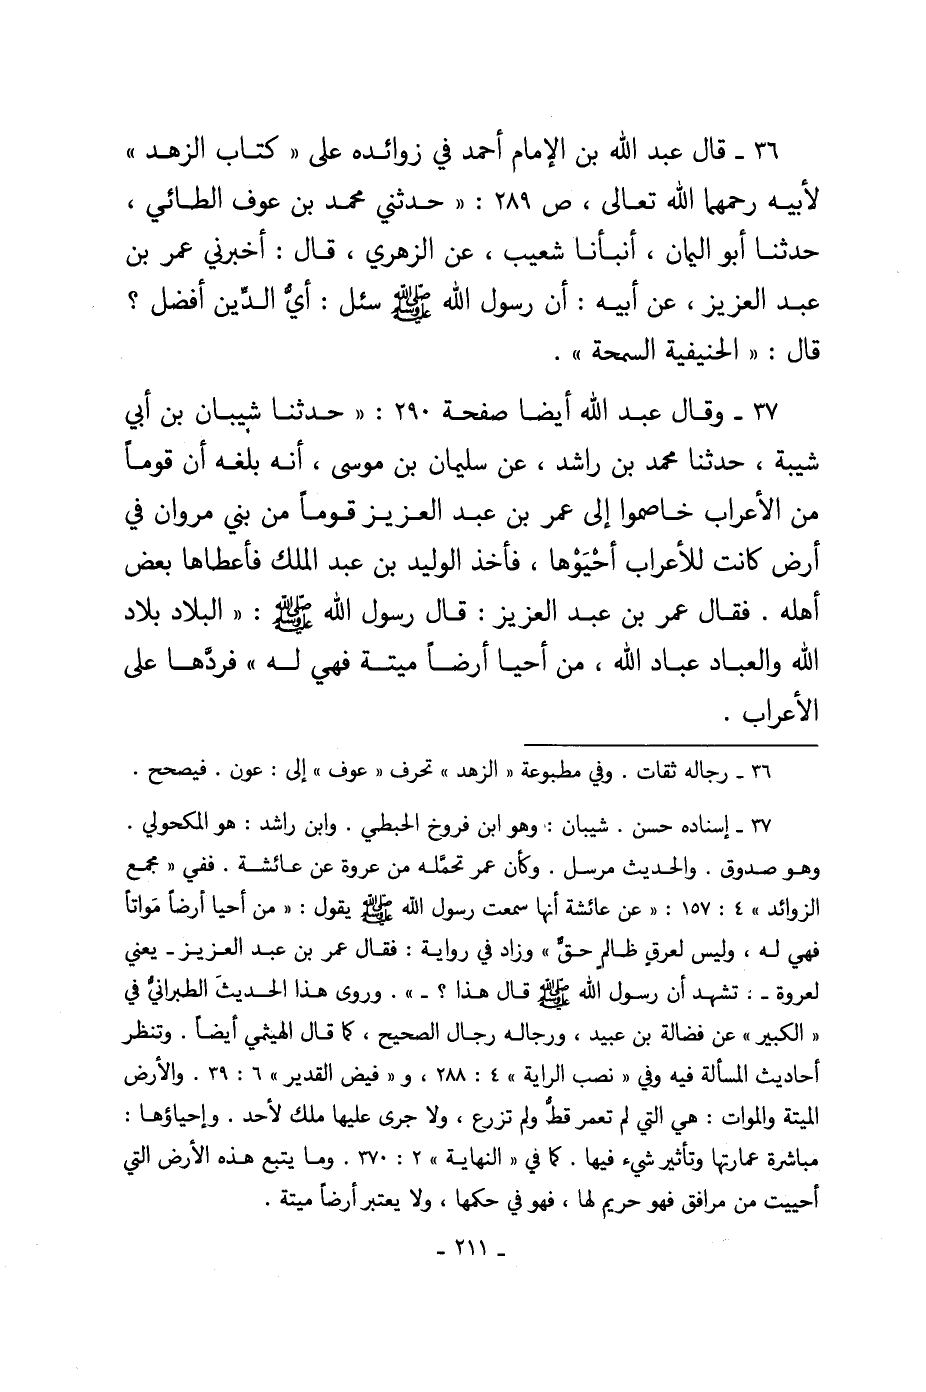 ٣٦ ـ قال عبد الله بن الإمام أحمد في زوائده على « كتاب الزهد »
لأبيه رحمها الله تعالى ، ص ٢٨٩ : « حدثني محمد بن عوف الطائي ،
حدثنا أبو اليمان ، أنبأنا شعيب ، عن الزهري ، قال : أخبرني عمر بن
عبد العزيز ، عن أبيه : أن رسول الله ﷺ سئل : أيُّ الدِّين أفضل ؟
قال : « الحنيفية السمحة » .
٣٧ ـ وقال عبد الله أيضا صفحة ٢٩٠ : « حدثنا شيبان بن أبي
شيبة ، حدثنا محمد بن راشد ، عن سليمان بن موسى ، أنه بلغه أن قوماً
من الأعراب خاصموا إلى عمر بن عبد العزيز قوماً من بني مروان في
أرض كانت للأعراب أحْيَوْها ، فأخذ الوليد بن عبد الملك فأعطاها بعض
أهله . فقال عمر بن عبد العزيز : قال رسول الله ﷺ : « البلاد بلاد
الله والعباد عباد الله ، من أحيا أرضاً ميتة فهي له » فردَّها على
الأعراب .
٣٦ ـ رجاله ثقات . وفي مطبوعة « الزهد » تحرف « عوف » إلى : عون . فيصحح .
٣٧ ـ إسناده حسن . شيبان : وهو ابن فروخ الحبطي . وابن راشد : هو المكحولي .
وهو صدوق . والحديث مرسل . وكأن عمر تحمَّله من عروة عن عائشة . ففي « مجمع
الزوائد » ٤ : ١٥٧ : « عن عائشة أنها سمعت رسول الله ﷺ يقول : « من أحيا أرضاً مَواتاً
فهي له ، وليس لعرقٍ ظالمٍ حقٌّ » وزاد في رواية : فقال عمر بن عبد العزيز ـ يعني
لعروة ـ : تشهد أن رسول الله ﷺ قال هذا ؟ ـ » . وروى هذا الحديثَ الطبرانيُّ في
« الكبير » عن فضالة بن عبيد ، ورجاله رجال الصحيح ، كما قال الهيثمي أيضاً . وتنظر
أحاديث المسألة فيه وفي « نصب الراية » ٤ : ٢٨٨ ، و « فيض القدير » ٦ : ٣٩ . والأرض
الميتة والموات : هي التي لم تعمر قطُّ ولم تزرع ، ولا جرى عليها ملك لأحد . وإحياؤها :
مباشرة عمارتها وتأثير شيء فيها . كما في « النهاية » ٢ : ٣٧٠ . وما يتبع هذه الأرض التي
أحييت من مرافق فهو حريم لها ، فهو في حكمها ، ولا يعتبر أرضاً ميتة .
ـ ٢١١ ـ